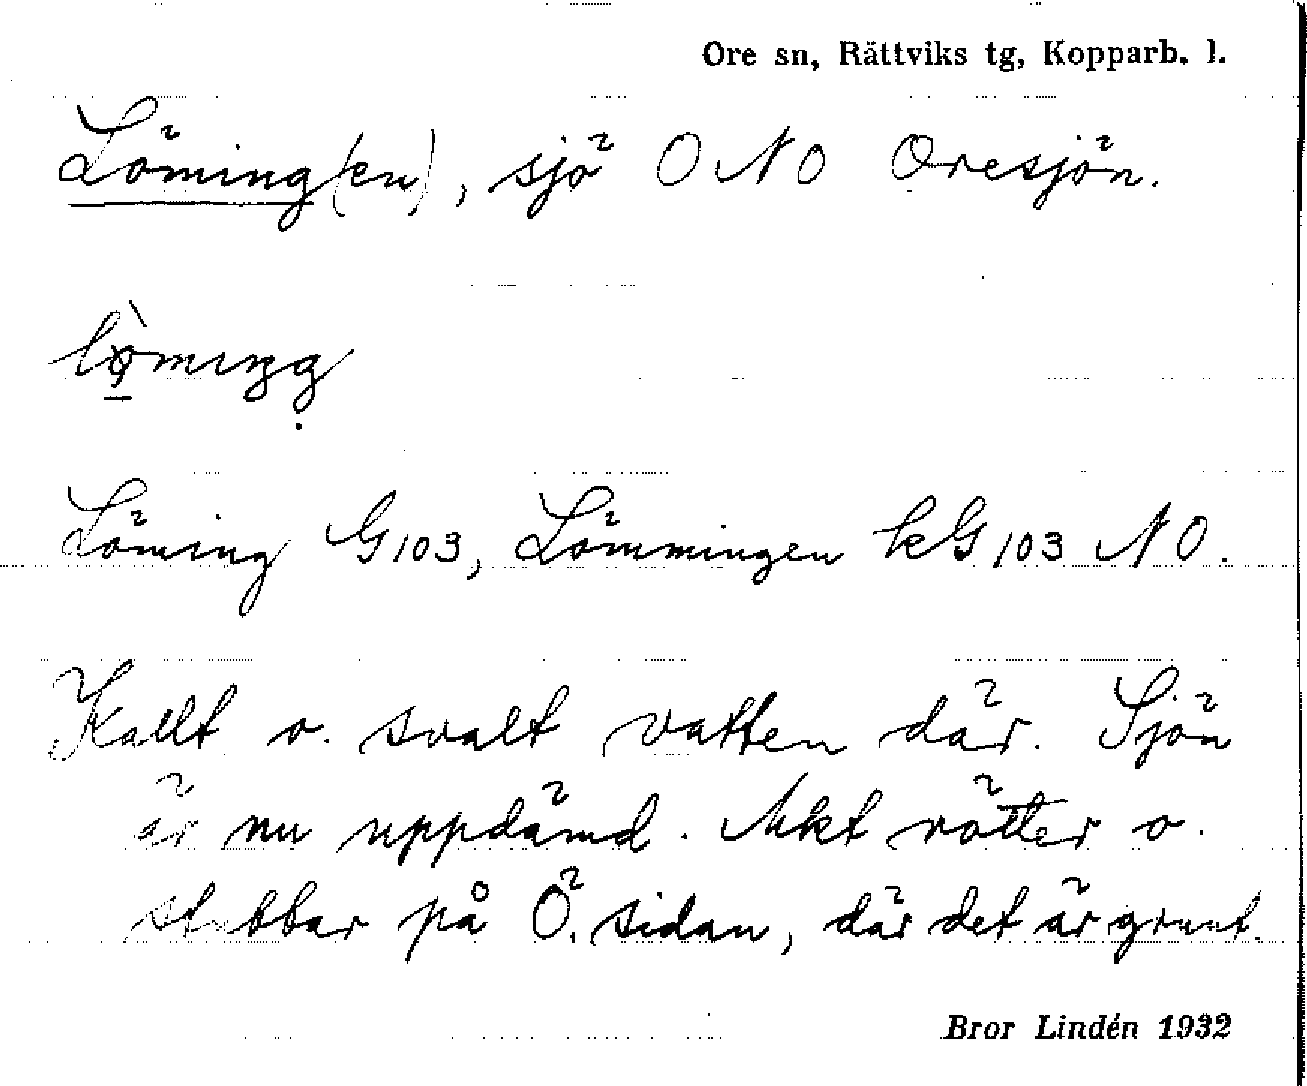 Ore sn, Rättviks tg, Kopparb. l.
Löming(en), sjö ONO Oresjön.
Löming G103, Lömmingen kG103 NO.
Kallt o. svalt vatten där. Sjön
är nu uppdämd. Mkt rötter o.
stubbar på Ö. sidan, där det är grunt.
Bror Lindén 1932